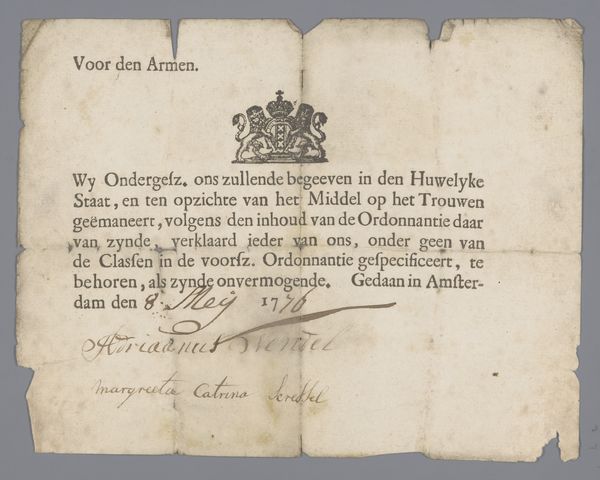 Voor den Armen.
Wy Ondergesz. ons zullende begeeven in den Huwelyke
Staat, en ten opzichte van het Middel op het Trouwen
geëmaneert, volgens den inhoud van de Ordonnantie daar
van zynde, verklaard ieder van ons, onder geen van
de Classen in de voorsz. Ordonnantie gespecificeert, te
behoren, als zynde onvermogende. Gedaan in Amster-
dam den 8 Meij 1776
Adriaanus Wendel
Margreeta Catrina